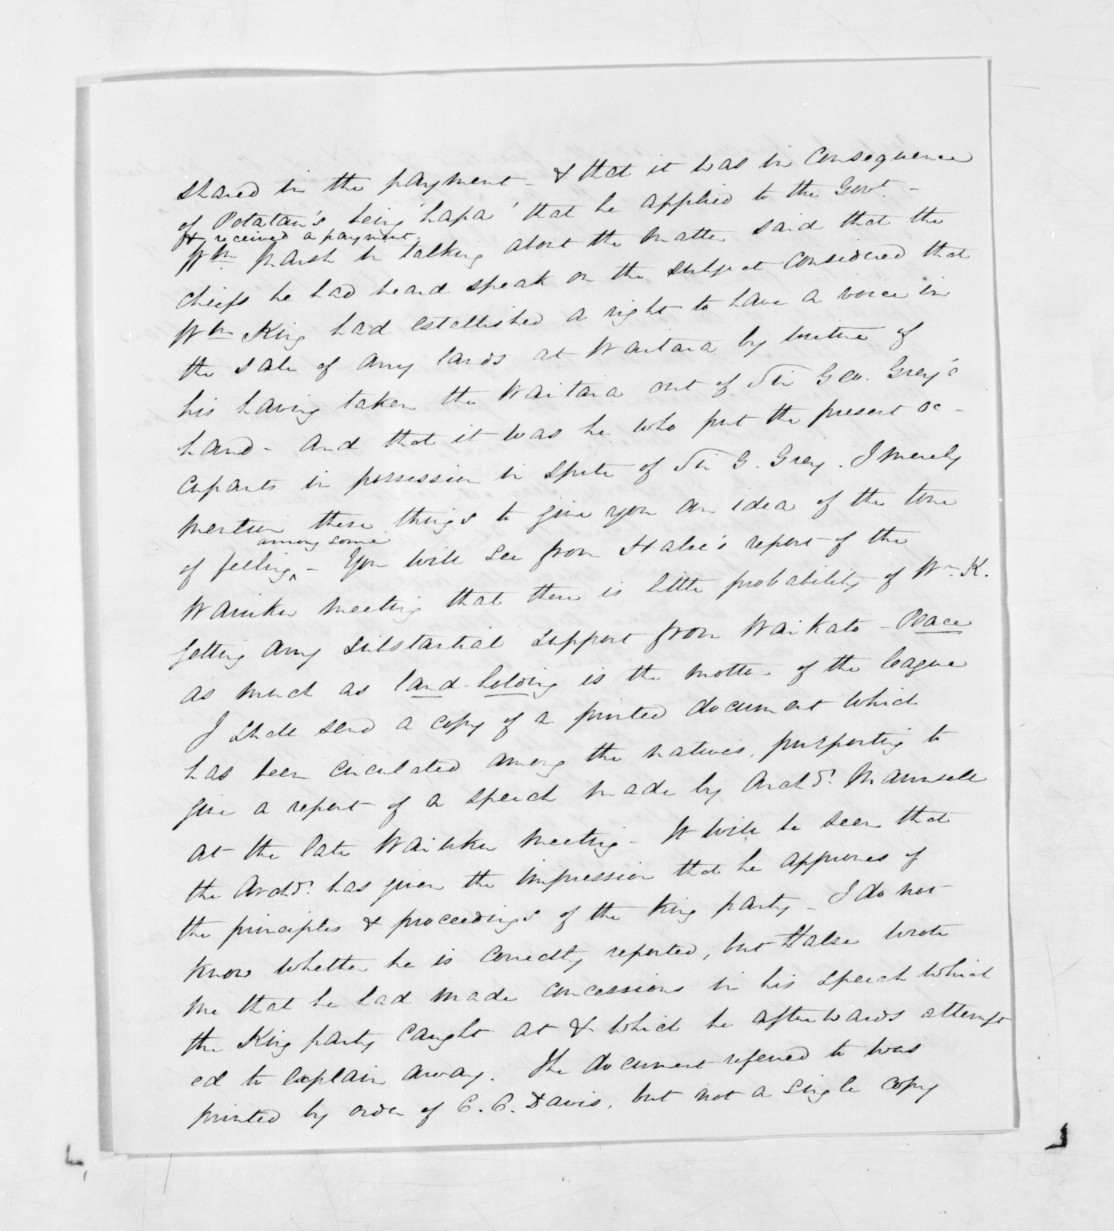 shared in the payment - & that it was in consequence
of Potatau's being 'hapa' that he applied to the Govt. -
& received a payment.
Wm. Marsh in talking about the matter said that the
chiefs he had heard speak on the subject considered that
Wm King had established a right to have a voice in
the sale of any lands at Waitara by virtue of
his having taken the Waitara out of Sir Geo. Grey's
hand - and that it was he who put the present oc-
cupants in possession in spite of Sir G. Grey. I merely
mention these things to give you an idea of the tone
among some
of feeling - You will see from Halse's report of the
Waiuku meeting that there is little probability of Wm K.
getting any substantial support from Waikato - Peace
as much as land-holding is the motto of the league
I shall send a copy of a printed document which
has been circulated among the natives, purporting to
give a report of a speech made by Archd. Maunsell
at the late Waiuku meeting - It will be seen that
the Archd. has given the impression that he approves of
the principles & proceedings of the King party - I do not
know whether he is correctly reported, but Halse wrote
me that he had made concessions in his speech which
the King party caught at & which he afterwards attempt
ed to explain away. The document referred to was
printed by order of C. O. Davis, but not a single copy